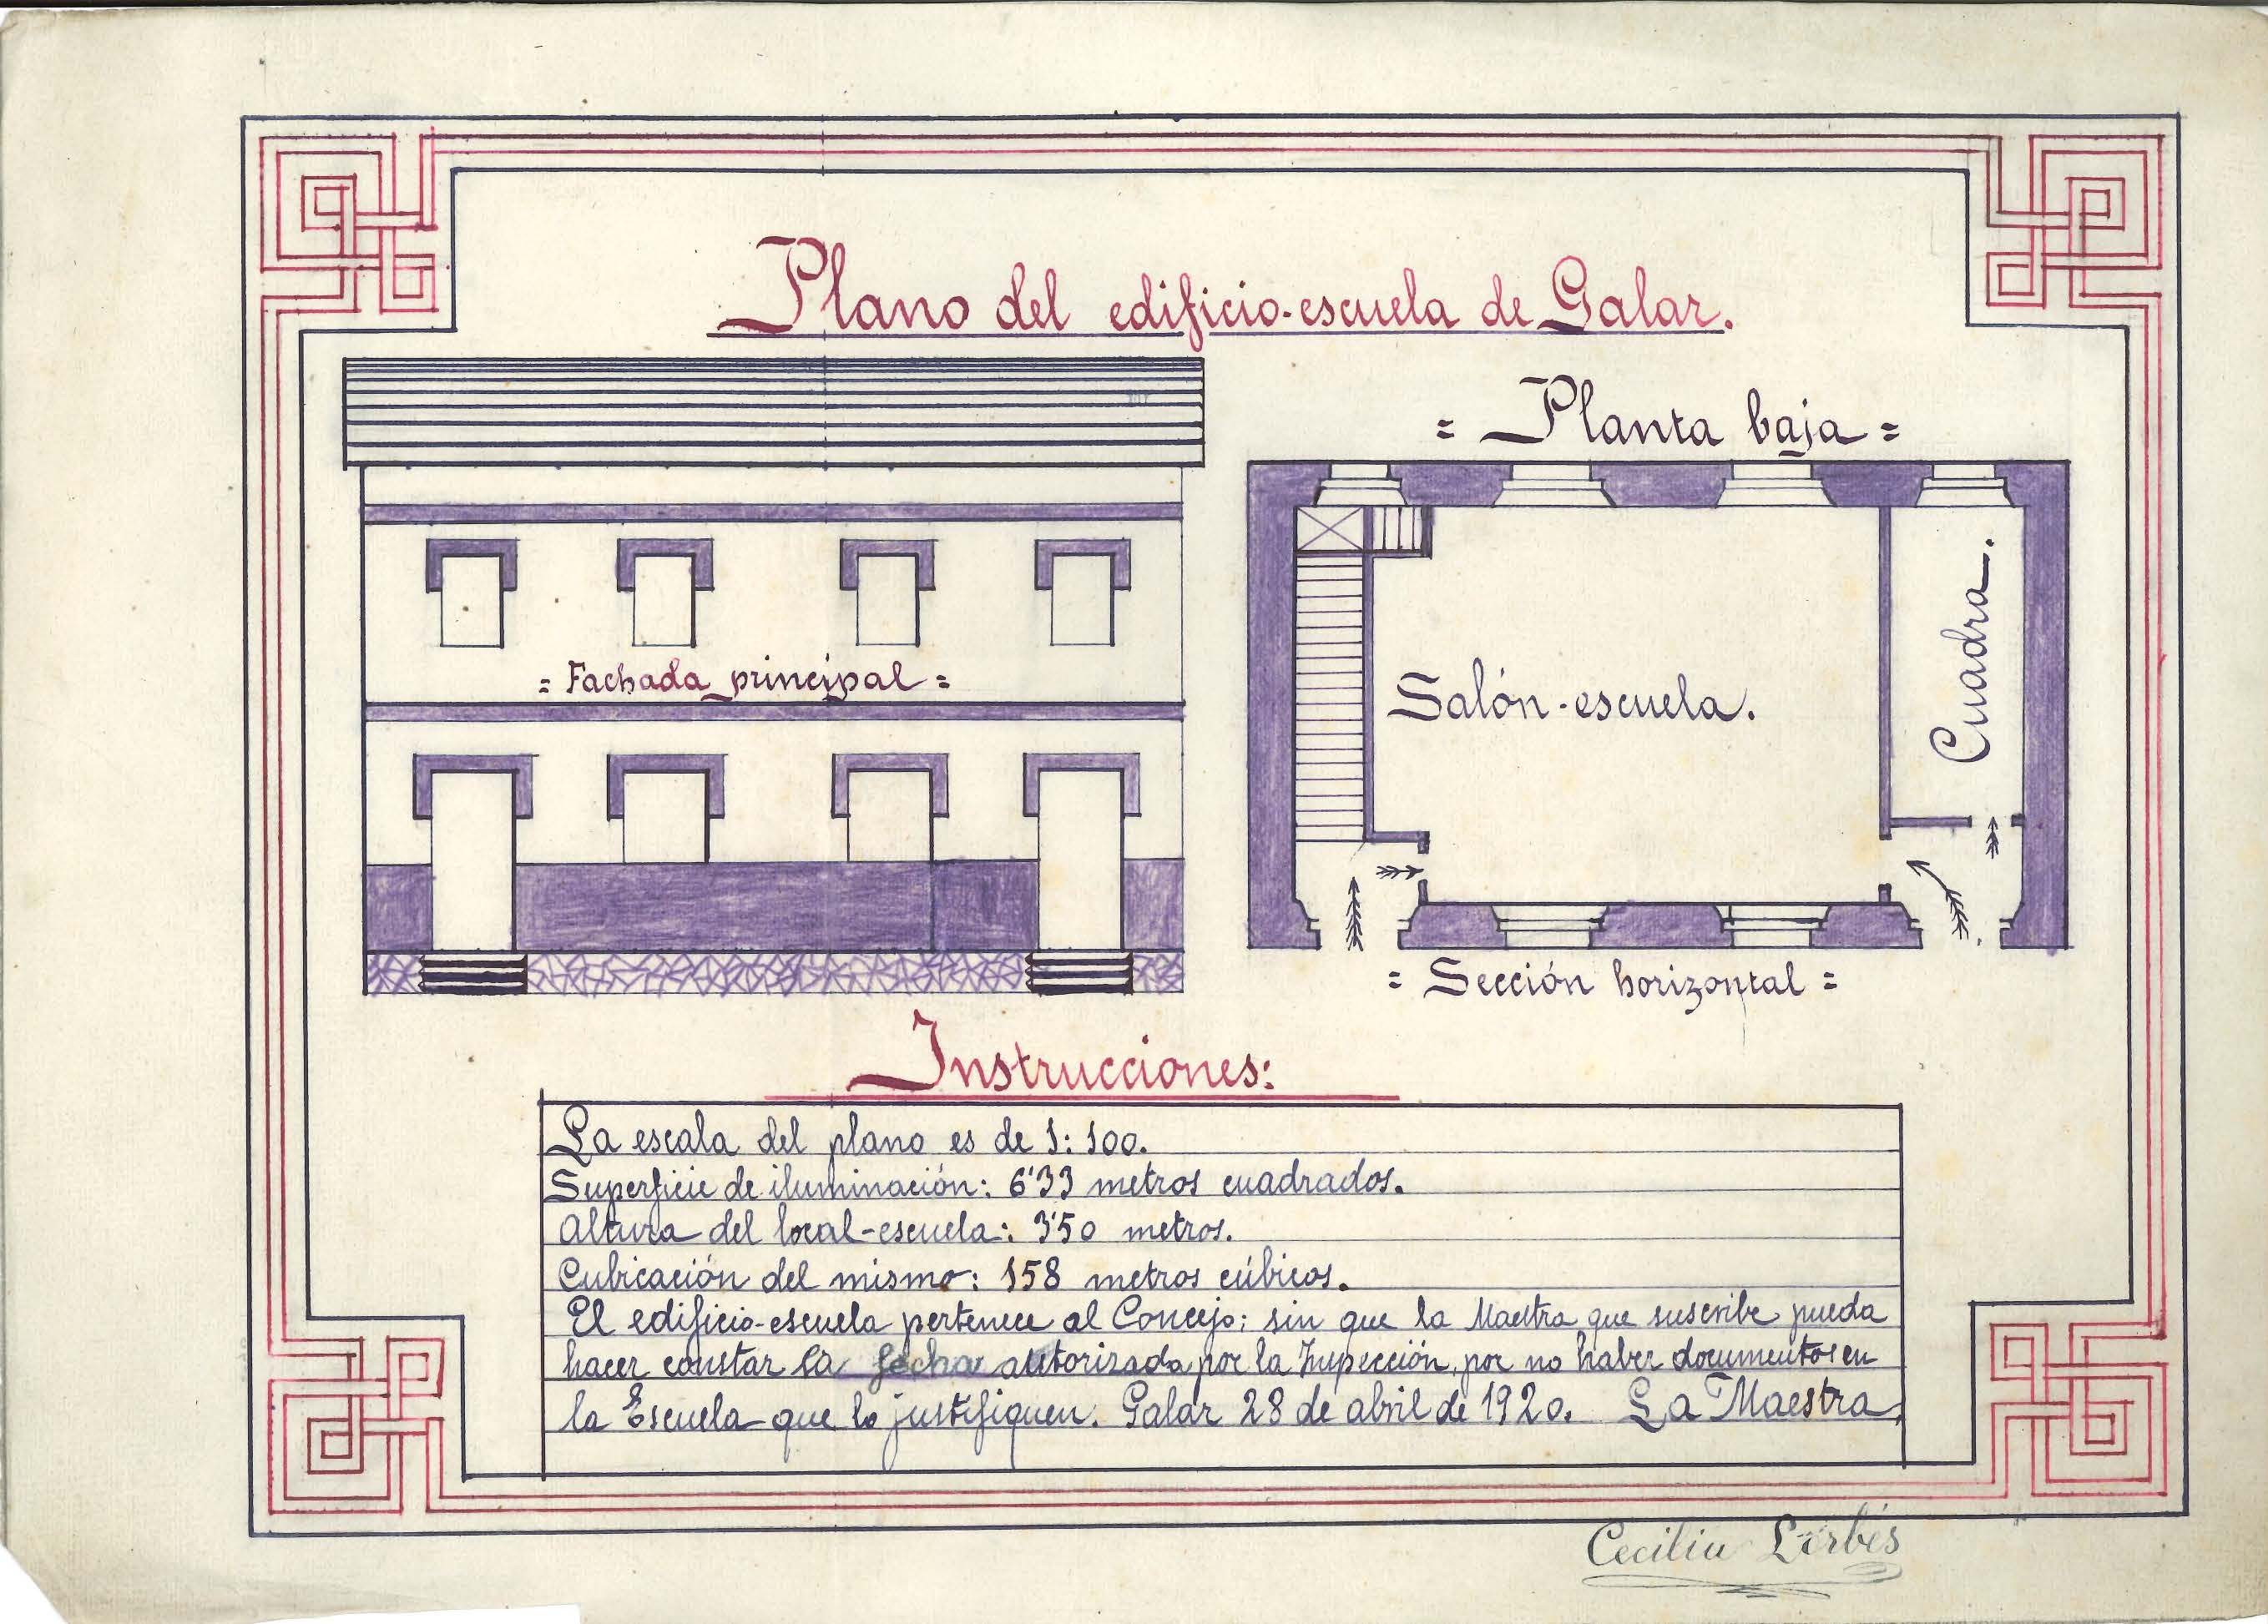 Plano del edificio-escuela de Galar.
= Planta baja =
= Fachada principal =
Salón-escuela.
Cuadra.
= Sección horizontal =
Instrucciones:
La escala del plano es de 1:100.
Superficie de iluminación: 6'33 metros cuadrados.
Altura del local-escuela: 3'50 metros.
Cubicación del mismo: 158 metros cúbicos.
El edificio-escuela pertenece al Concejo; sin que la Maestra que suscribe pueda
hacer constar la fecha autorizada por la Inspección, por no haber documentos en
la Escuela que lo justifiquen. Galar 28 de abril de 1920. La Maestra,
Cecilia Lerbés